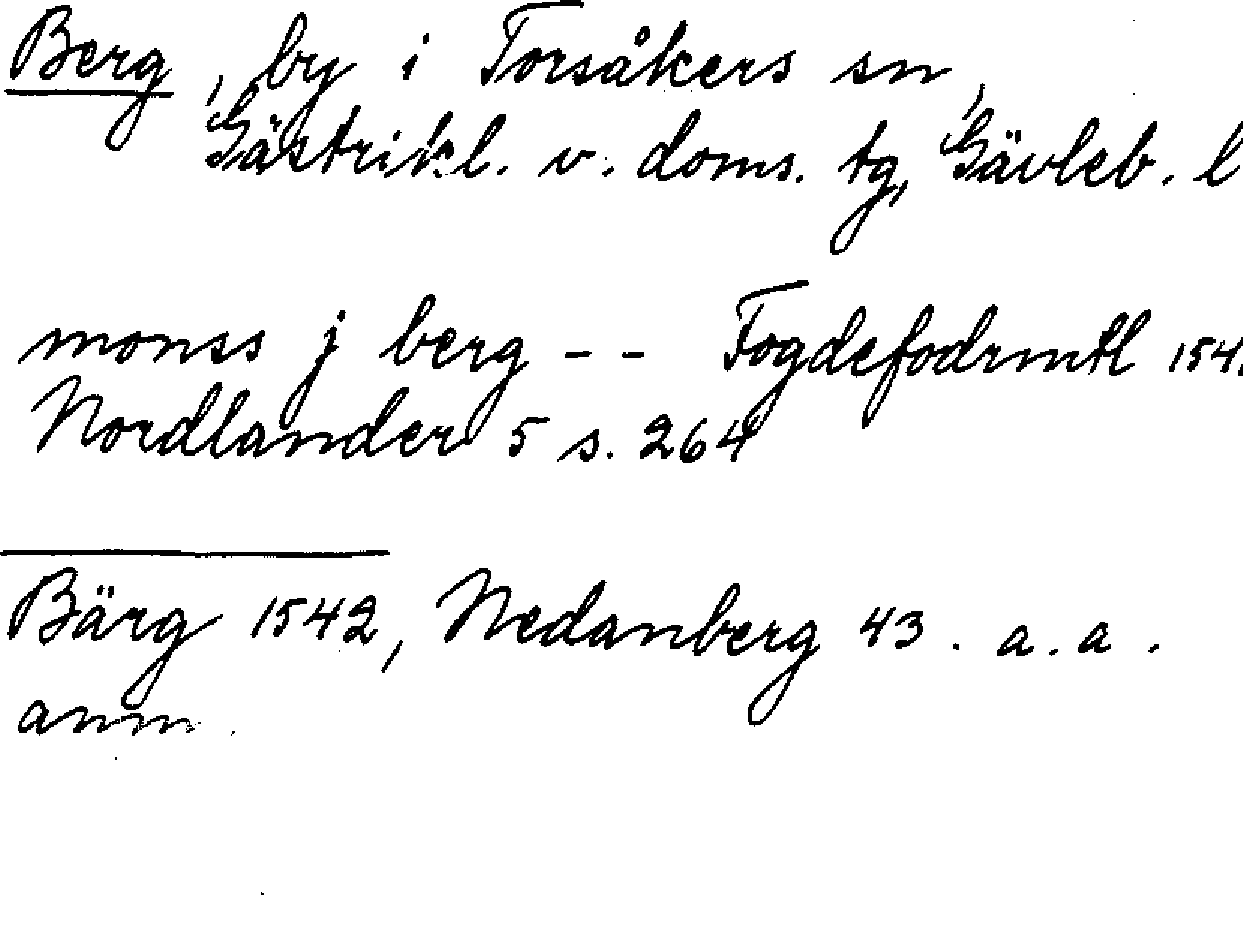 Berg, by i Torsåkers sn,
Gästrikl. v. doms. tg, Gävleb. l
monss j berg - - Fogdefodrmtl 154
Nordlander 5 s. 264
Bärg 1542, Nedanberg 43. a. a.
anm.